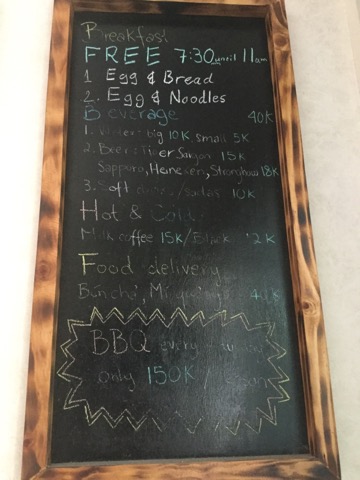 Breakfast
FREE 7:30 until 11am
1. Egg & Bread
2. Egg & Noodles
Beverage 40K
1. Water: big 10K small 5K
2. Beer: Tiger Saigon 15K
Sapporo, Heineken, Strongbow 18K
3. Soft /sodas 10K
Hot & Cold
Milk coffee 15K/Black 12K
Food delivery
Buncha, 40K
BBQ every
only 150K /